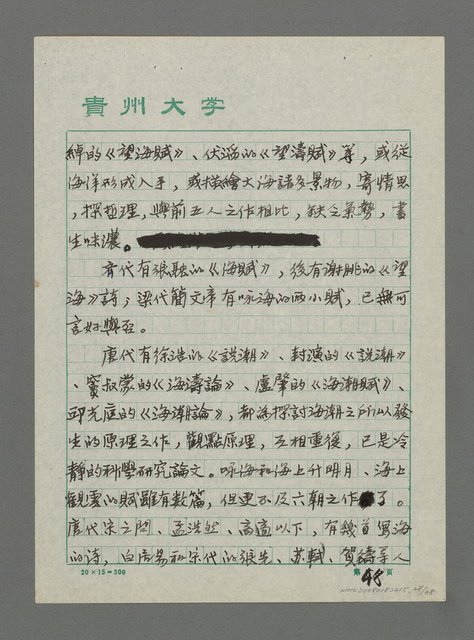 貴州大学
綽的《望海賦》、伏滔的《望濤賦》等，或從
海洋形成入手，或描繪大海諸多景物，寄情思
，探哲理，與前五人之作相比，缺乏氣勢，書
生味濃。
齊代有張融的《海賦》，後有謝朓的《望
海》詩；梁代簡文帝有咏海的兩小賦，已無可
言好與否。
唐代有徐浩的《説潮》、封演的《説潮》
、竇叔蒙的《海濤論》、盧肇的《海潮賦》、
邱光庭的《海潮論》，都為探討海潮之所以發
生的原理之作，觀點原理，互相重復，已是冷
靜的科學研究論文。咏海和海上升明月、海上
觀雲的賦雖有数篇，但更不及六朝之作了。
唐代宋之問、孟浩然、高適以下，有幾首寫海
的詩，白居易和宋代的張先、蘇軾、賀鑄等人
20×15=300
第48頁